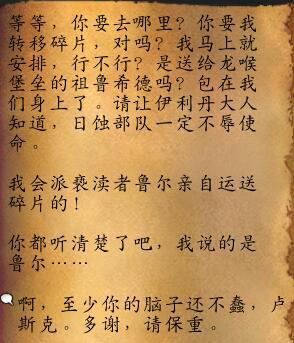 等等，你要去哪里？你要我
转移碎片，对吗？我马上就
安排，行不行？是送给龙喉
堡垒的祖鲁希德吗？包在我
们身上了。请让伊利丹大人
知道，日蚀部队一定不辱使
命。
我会派亵渎者鲁尔亲自运送
碎片的！
你都听清楚了吧，我说的是
鲁尔……
啊，至少你的脑子还不蠢，卢
斯克。多谢，请保重。